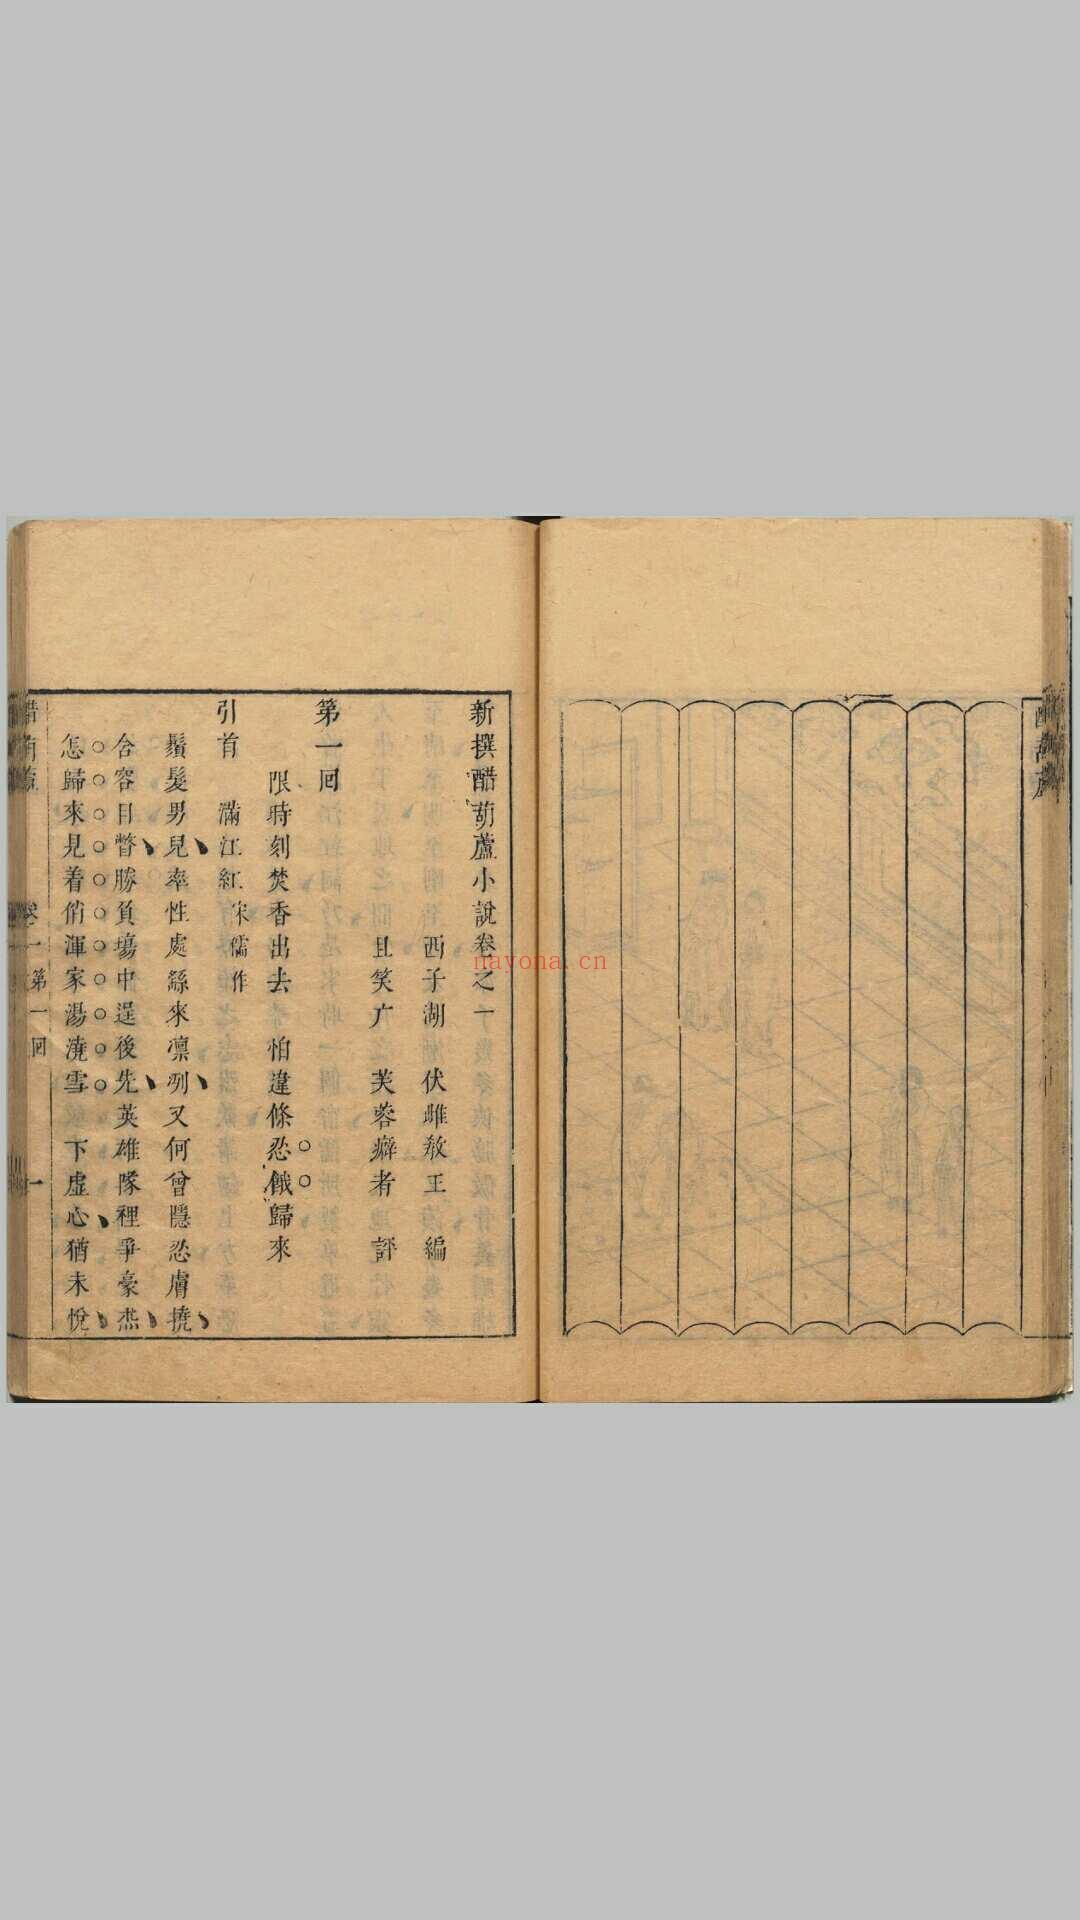 新撰醋葫蘆小說卷之一
西子湖 伏雌教主編
且笑广 芙蓉癖者評
第一回
限時刻焚香出去 怕違條忍餓歸來
引首 滿江紅 宋儒作
鬚髮男兒率性處絲來凜冽又何曾隱忍膚撓
含容目瞥勝負場中逞後先英雄隊裡爭豪杰
怎歸來見着俏渾家湯澆雪 下虛心猶未悅
醋葫蘆 卷一 第一回 一
nayona.cn